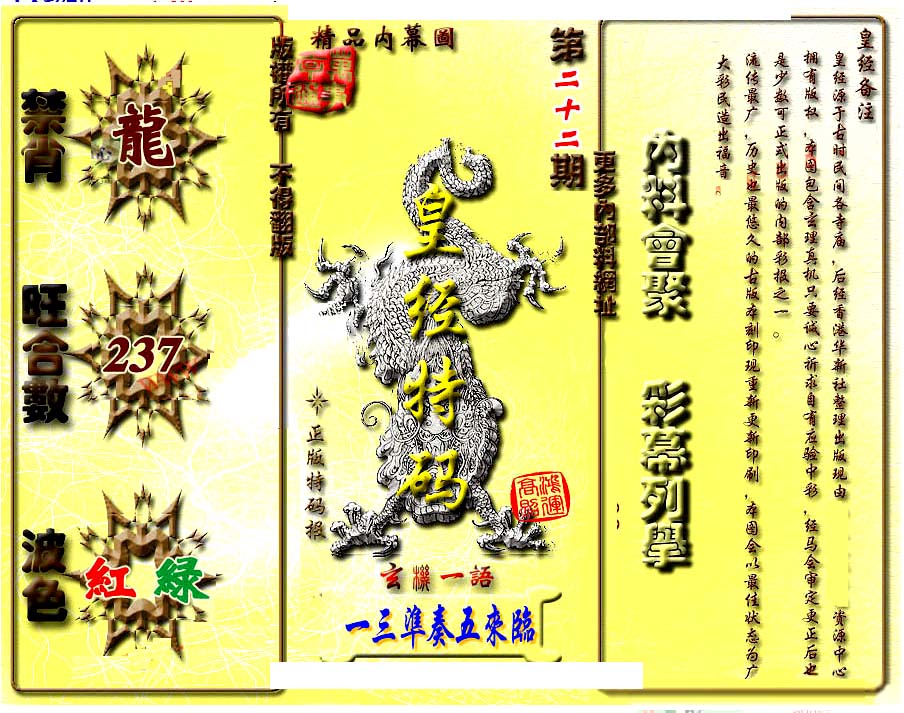 精品內幕圖
第二十二期
版權所有 不得翻版
更多內部料網址
禁肖
龍
旺合數
237
波色
紅 綠
皇经特码
正版特码报
鴻運高照
玄機一語
一三準奏五來臨
內料會聚 彩幕列舉
皇经备注
皇经源于古时民间各寺庙，后经香港华新社整理出版现由 资源中心
拥有版权，本图包含玄理真机只要诚心祈求自有应验中彩，经马会审定更正后也
是少数可正式出版的内部彩报之一。
流传最广，历史也最悠久的古版本刻印现重新更新印刷，本图会以最佳状态为广
大彩民造出福音